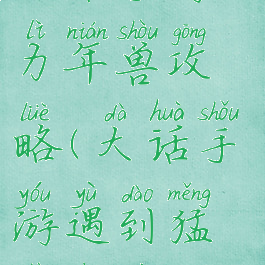 lì nián shòu gōng
力年兽攻
lüè dà huà shǒu
略(大话手
yóu yù dào měng
游遇到猛